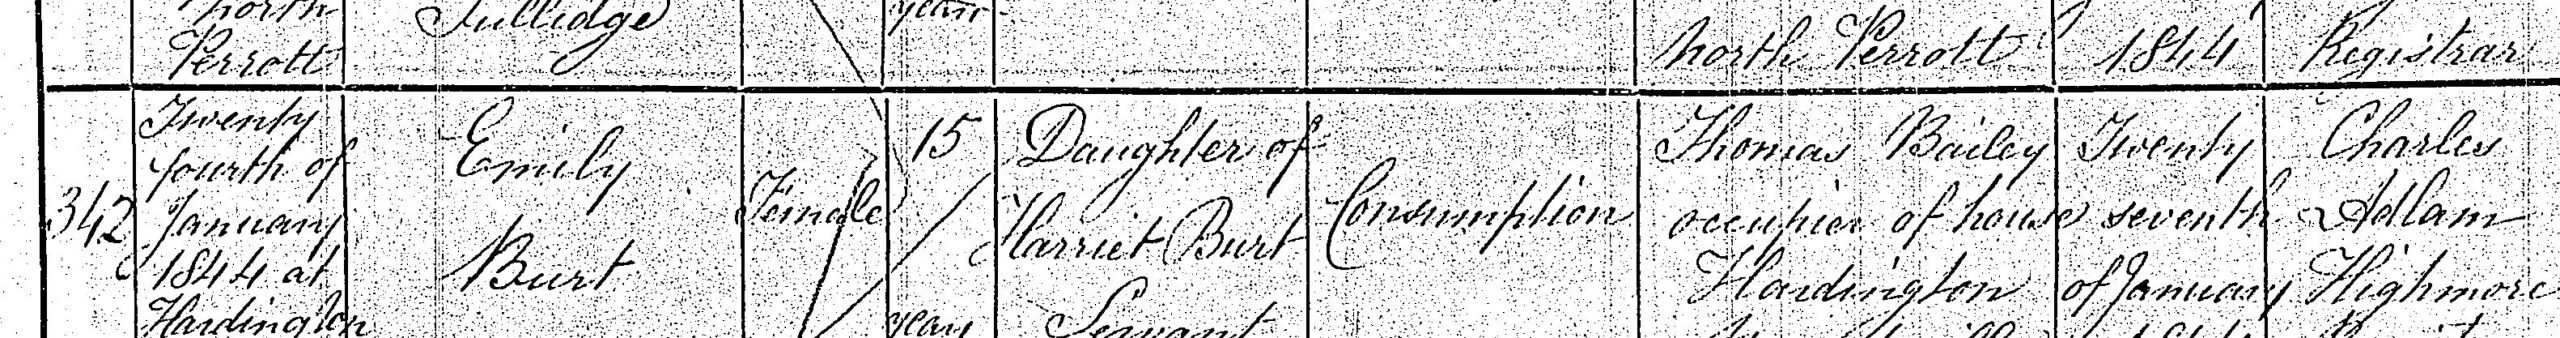 north
Perrott
Tullidge
years
North Perrott
1844
Registrar
342
Twenty
fourth of
January
1844 at
Hardington
Emily
Burt
Female
15
years
Daughter of
Harriet Burt
Servant
Consumption
Thomas Bailey
occupier of house
Hardington
Twenty
seventh
of January
1844
Charles
Adlam
Highmore